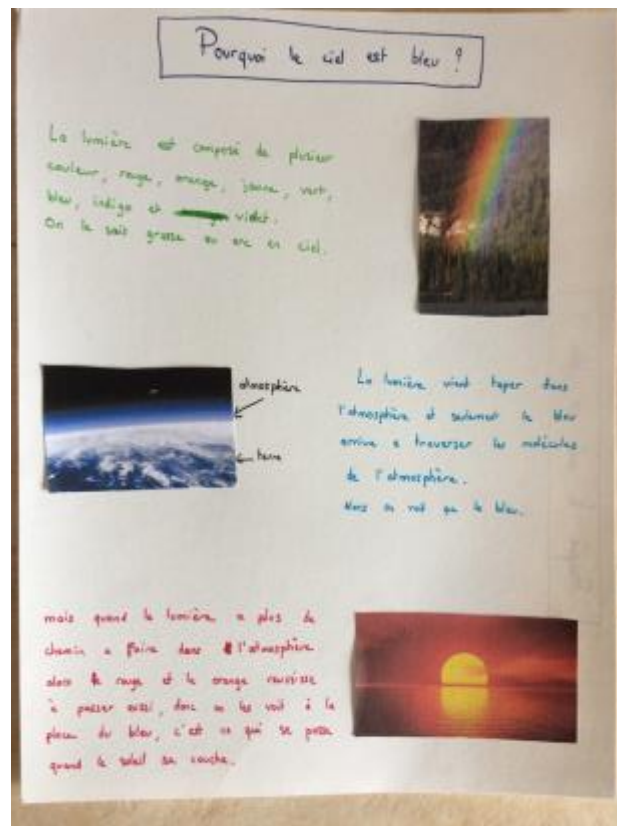 Pourquoi le ciel est bleu ?
La lumière est composé de plusieur
couleur, rouge, orange, jaune, vert,
bleu, indigo et violet.
On le sait grasse au arc en ciel.
atmosphère
terre
La lumière vient taper dans
l'atmosphère et seulement le bleu
arrive a traverser les molécules
de l'atmosphère.
Alors on voit que le bleu.
mais quand la lumière a plus de
chemin a faire dans l'atmosphère
alors le rouge et le orange reussisse
à passer aussi, donc on les voit à la
place du bleu, c'est ce qui se passe
quand le soleil se couche.